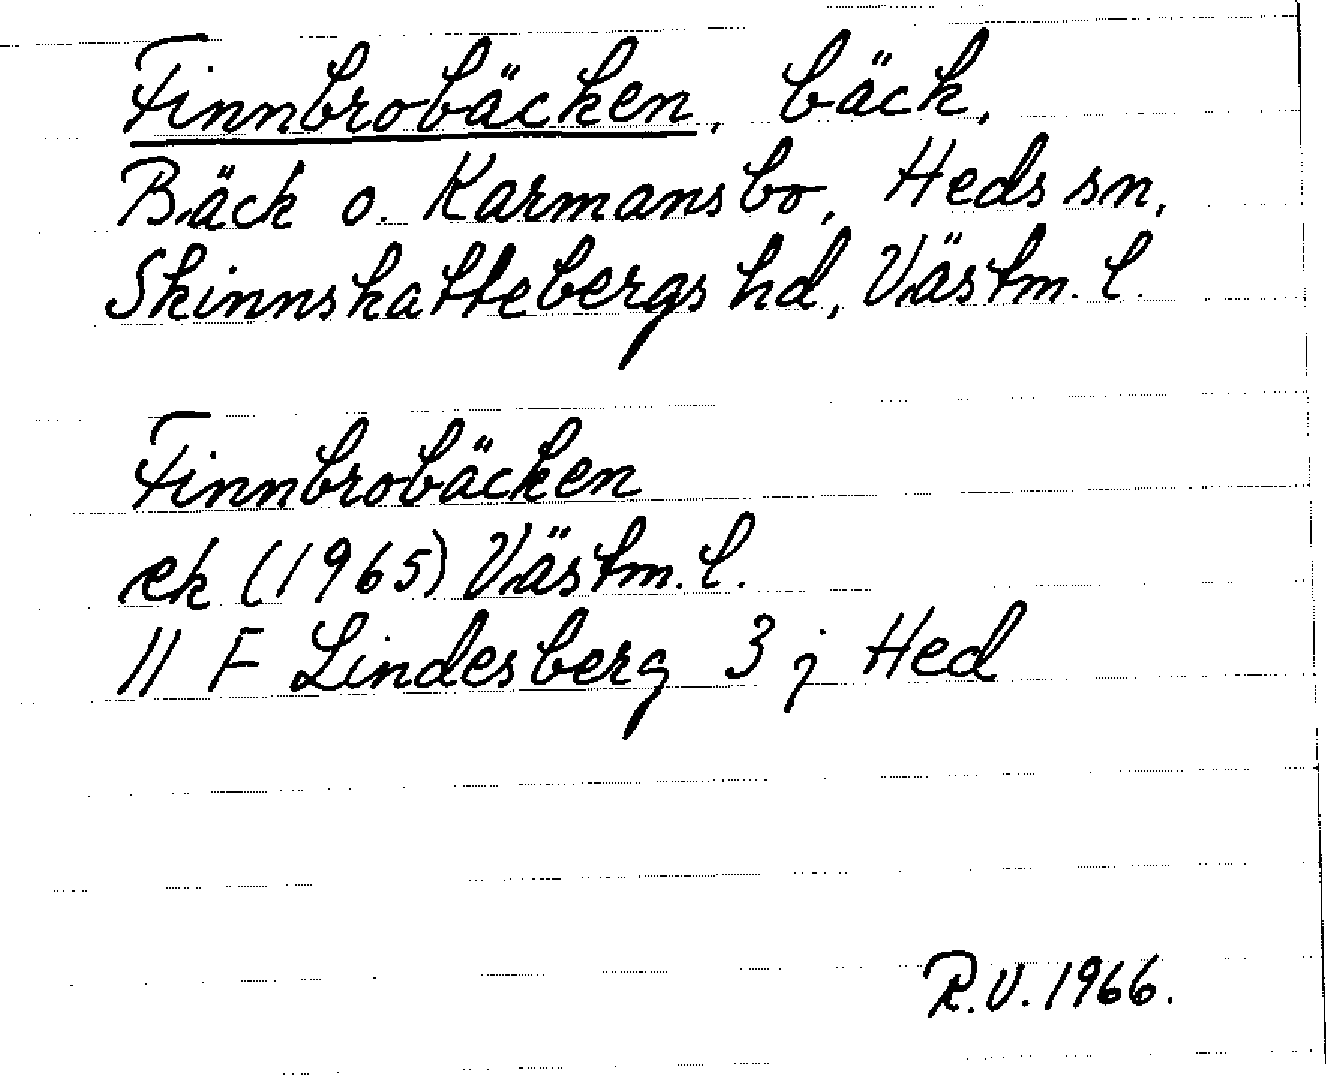 Finnbrobäcken, bäck.
Bäck o. Karmansbo, Heds sn,
Skinnskattebergs hd, Västm. l.
Finnbrobäcken
ek (1965) Västm. l.
11 F Lindesberg 3 j Hed
R.V. 1966.